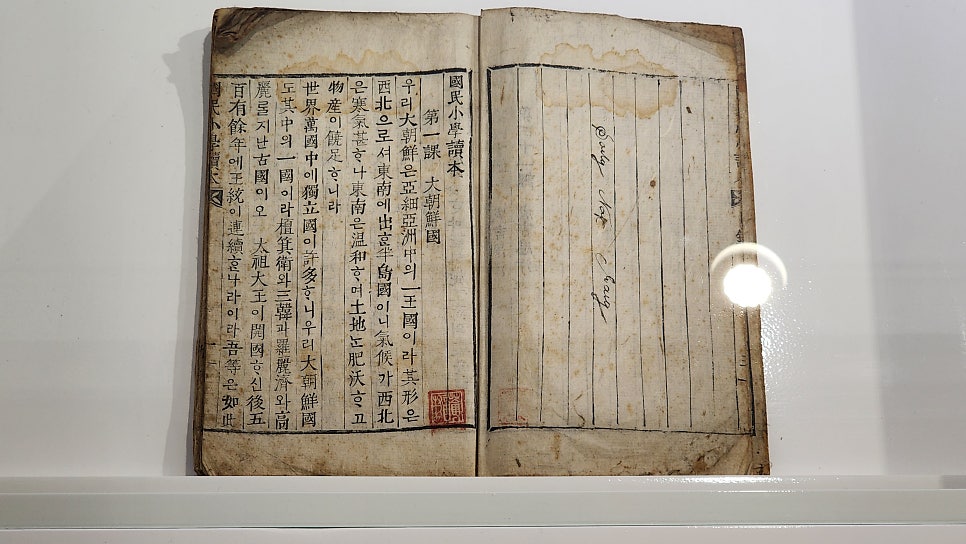 國民小學讀本
第一課 大朝鮮國
우리大朝鮮은亞細亞洲中의一王國이라其形은
西北으로셔東南에出ᄒᆞᆫ半島國이니氣候가西北
은寒氣甚ᄒᆞ나東南은温和ᄒᆞ며土地ᄂᆞᆫ肥沃ᄒᆞ고
物産이饒足ᄒᆞ니라
世界萬國中에獨立國이許多ᄒᆞ니우리大朝鮮國
도其中의一國이라檀箕衛와三韓과羅麗濟와高
麗ᄅᆞᆯ지난古國이오 太祖大王이開國ᄒᆞ신後五
百有餘年에王統이連續ᄒᆞᆫ나라이라吾等은如此
國民小學讀本